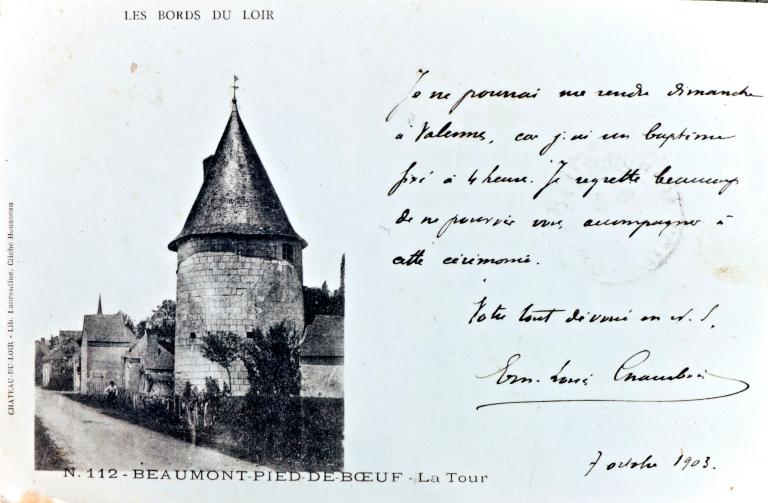 LES BORDS DU LOIR
Je ne pourrai me rendre dimanche
à Valennes, car j'ai un baptême
fixé à 4 heures. Je regrette beaucoup
de ne pouvoir vous accompagner à
cette cérémonie.
Votre tout dévoué en N. S.
Louis
7 octobre 1903.
CHATEAU-DU-LOIR - Lib. Laurentine. Cliché Housseau
N. 112 - BEAUMONT-PIED-DE-BŒUF - La Tour